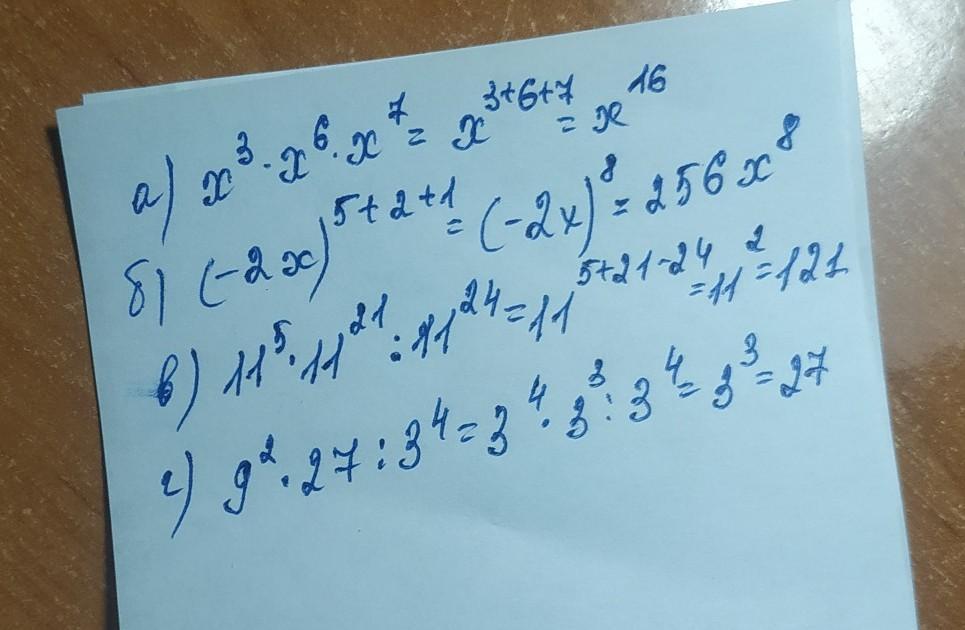 а) x³ · x⁶ · x⁷ = x³⁺⁶⁺⁷ = x¹⁶
б) (-2x)⁵⁺²⁺¹ = (-2x)⁸ = 256x⁸
в) 11⁵ · 11²¹ : 11²⁴ = 11⁵⁺²¹⁻²⁴ = 11² = 121
г) 9² · 27 : 3⁴ = 3⁴ · 3³ : 3⁴ = 3³ = 27